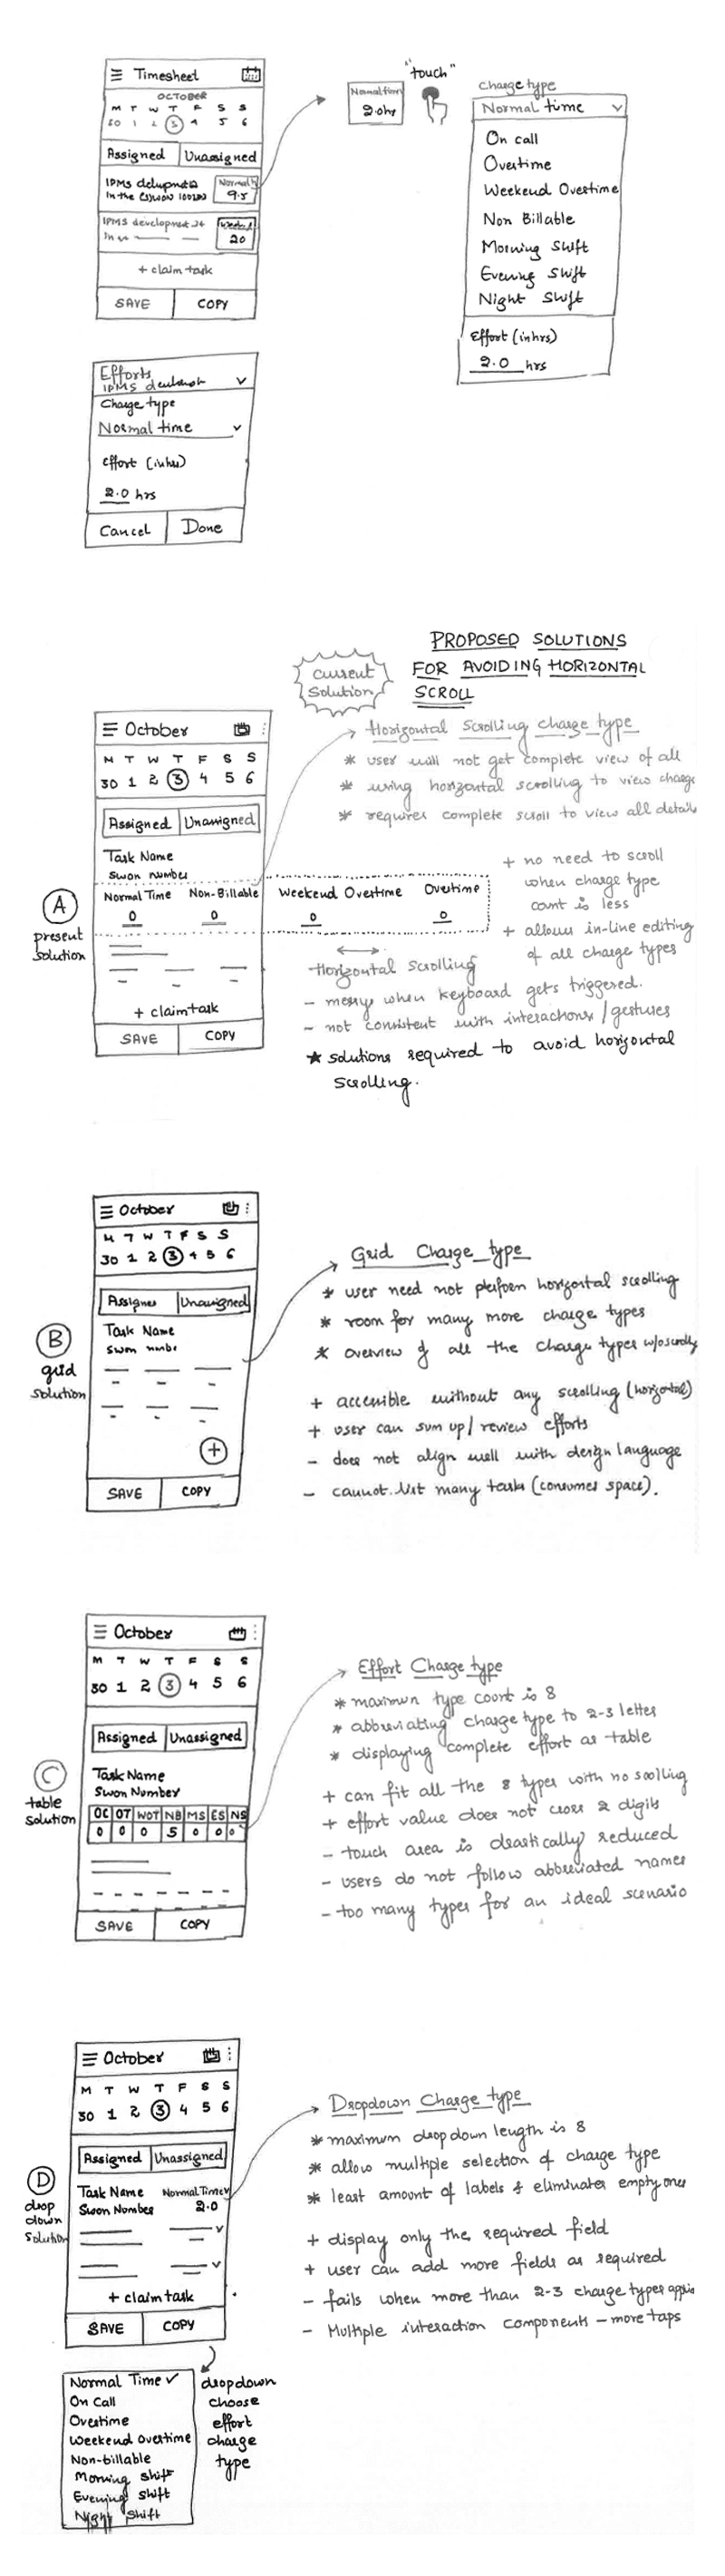 Timesheet
OCTOBER
M T W T F S S
30 1 2 3 4 5 6
Assigned Unassigned
IPMS
in the
Normal
9.5
IPMS development
20
+ claim task
SAVE COPY
Normal time
2.0hr
"touch"
Charge type
Normal time
On call
Overtime
Weekend Overtime
Non Billable
Morning Shift
Evening Shift
Night Shift
Effort (in hrs)
2.0 hrs
Efforts
IPMS
Charge type
Normal time
effort (in hrs)
2.0 hrs
Cancel Done
PROPOSED SOLUTIONS
FOR AVOIDING HORIZONTAL
SCROLL
Current
Solution
October
M T W T F S S
30 1 2 3 4 5 6
Assigned Unassigned
Task Name
Swon number
Normal Time Non-Billable Weekend Overtime Overtime
0 0 0 0
+ claim task
SAVE COPY
A
present
solution
Horizontal Scrolling charge type
* user will not get complete view of all
* using horizontal scrolling to view charge
* requires complete scroll to view all details
+ no need to scroll
when charge type
count is less
+ allows in-line editing
of all charge types
Horizontal Scrolling
- messy when keyboard gets triggered.
- not consistent with interactions/gestures
★ solutions required to avoid horizontal
scrolling.
October
M T W T F S S
30 1 2 3 4 5 6
Assigned Unassigned
Task Name
Swon
+
SAVE COPY
B
grid
solution
Grid Charge type
* user need not perform horizontal scrolling
* room for many more charge types
* overview of all the charge types w/o
+ accessible without any scrolling (horizontal)
+ user can sum up/review efforts
- does not align well with design language
- cannot list many tasks (consumes space).
October
M T W T F S S
30 1 2 3 4 5 6
Assigned Unassigned
Task Name
Swon Number
OC OT WOT NB MS ES NS
0 0 0 5 0 0 0
SAVE COPY
C
table
solution
Effort Charge type
* maximum type count is 8
* abbreviating charge type to 2-3 letter
* displaying complete effort as table
+ can fit all the 8 types with no scolling
+ effort value does not cross 2 digits
- touch area is drastically reduced
- users do not follow abbreviated names
- too many types for an ideal scenario
October
M T W T F S S
30 1 2 3 4 5 6
Assigned Unassigned
Task Name Normal Time
Swon Number 2.0
+ claim task
SAVE COPY
D
drop
down
solution
Dropdown Charge type
* maximum dropdown length is 8
* allow multiple selection of charge type
* least amount of labels & eliminates empty ones
+ display only the required field
+ user can add more fields as required
- fails when more than 2-3 charge types
- Multiple interaction components - more taps
Normal Time ✓
On Call
Overtime
Weekend Overtime
Non-billable
Morning shift
Evening shift
Night shift
dropdown
choose
effort
charge
type